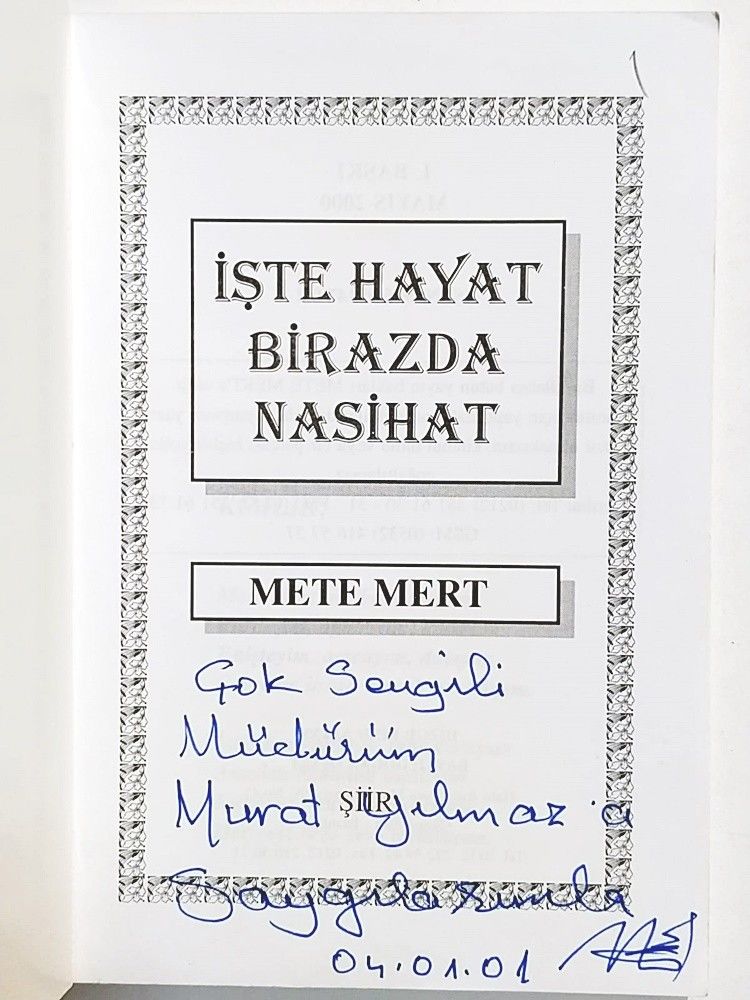 İŞTE HAYAT
BİRAZDA
NASİHAT
METE MERT
Çok Sevgili
Müdürüm
ŞİİR
Murat Yılmaz'a
Saygılarımla
04.01.01